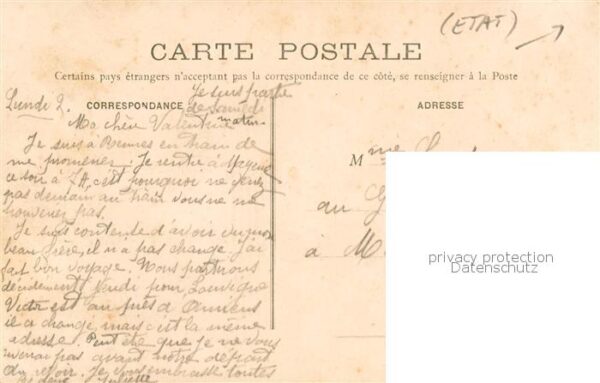 (ETAT)
CARTE POSTALE
Certains pays étrangers n'acceptant pas la correspondance de ce côté, se renseigner à la Poste
Je suis partie
Lundi 2. CORRESPONDANCE de samedi
ADRESSE
matin
Ma chère Valentine
Je suis à Rennes en train de
me promener. Je rentre à
ce soir à 7H, c'est pourquoi ne venez
pas demain au train vous ne me
trouverez pas.
Je suis contente d'avoir vu mon
beau frère, il n'a pas changé. J'ai
fait bon voyage. Nous partirons
décidément jeudi pour Louvigné
Victor est au près d'Amiens
il a changé, mais c'est la même
adresse. Peut être que je ne vous
pas avant notre départ
au revoir. Je vous embrasse toutes
Juliette
Mme
au G
à M
privacy protection
Datenschutz